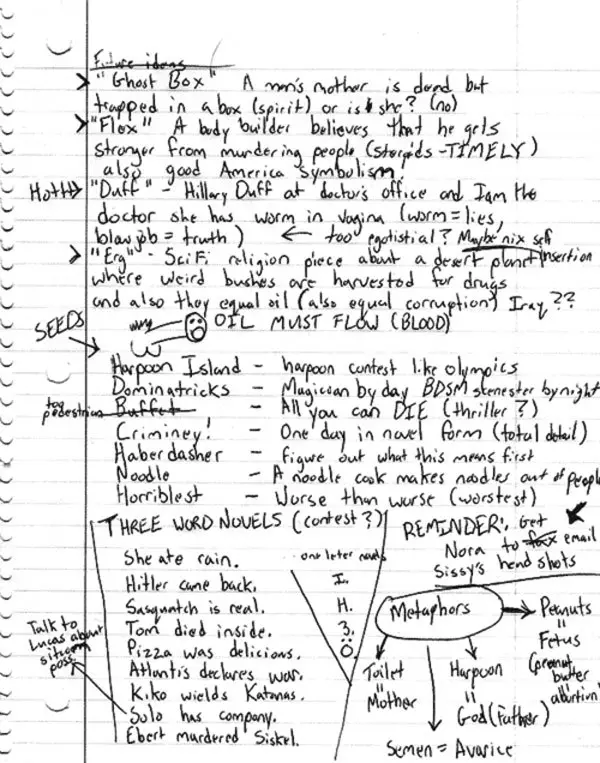 Future ideas
"Ghost Box" A man's mother is dead but
trapped in a box (spirit) or is she? (no)
"Flex" A body builder believes that he gets
stronger from murdering people (steroids - TIMELY)
also good America symbolism!
Hottt "Duff" - Hillary Duff at doctor's office and I am the
doctor she has worm in vagina (worm = lies,
blowjob = truth) ← too egotistial? Maybe nix self insertion
"Erg" - SciFi religion piece about a desert planet
where weird bushes are harvested for drugs
and also they equal oil (also equal corruption) Iraq??
OIL MUST FLOW (BLOOD)
SEEDS
Harpoon Island - harpoon contest like olympics
Dominatricks - Magician by day BDSM scenester by night
too pedestrian Buffet - All you can DIE (thriller?)
Criminey! - One day in novel form (total detail)
Haberdasher - figure out what this means first
Noodle - A noodle cook makes noodles out of people
Horriblest - Worse than worse (worstest)
THREE WORD NOVELS (contest?)
She ate rain.
Hitler came back.
Sasquatch is real.
Tom died inside.
Pizza was delicious.
Atlantis declares war.
Kiko wields Katanas.
Solo has company.
Ebert murdered Siskel.
Talk to
Lucas about
poss.
one leter novels
I.
H.
3.
Ö.
REMINDER: Get
Nora to fax email
Sissy's head shots
Metaphors
Peanuts
=
Fetus
(peanut
butter =
abortion)
Toilet
=
Mother
Harpoon
=
God (Father)
Semen = Avarice